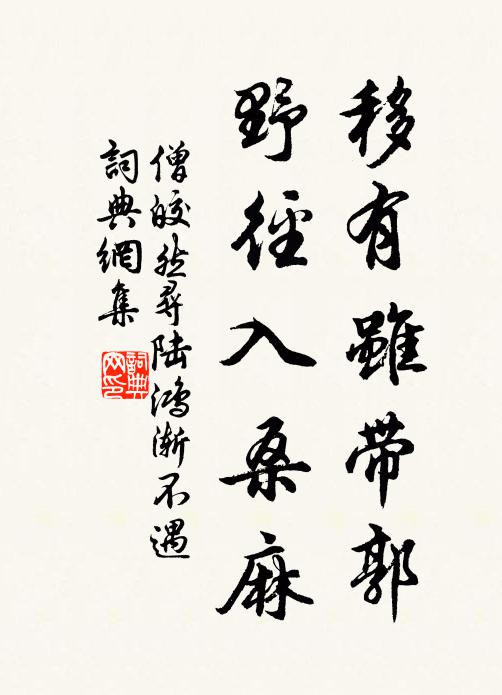 移有雖帶郭
野徑入桑麻
僧皎然尋陸鴻漸不遇
詞典網集
詞典
网印